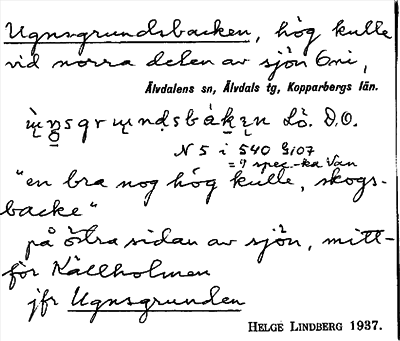 Ugnsgrundsbacken, hög kulle
vid norra delen av sjön Omi,
Älvdalens sn, Älvdals tg, Kopparbergs län.
Lå. D.O.
N 5 i 540 G107
= 9 spec.-ka Van
"en bra nog hög kulle, skogs-
backe"
på östra sidan av sjön, mitt-
för Källholmen
jfr Ugnsgrunden
HELGE LINDBERG 1937.